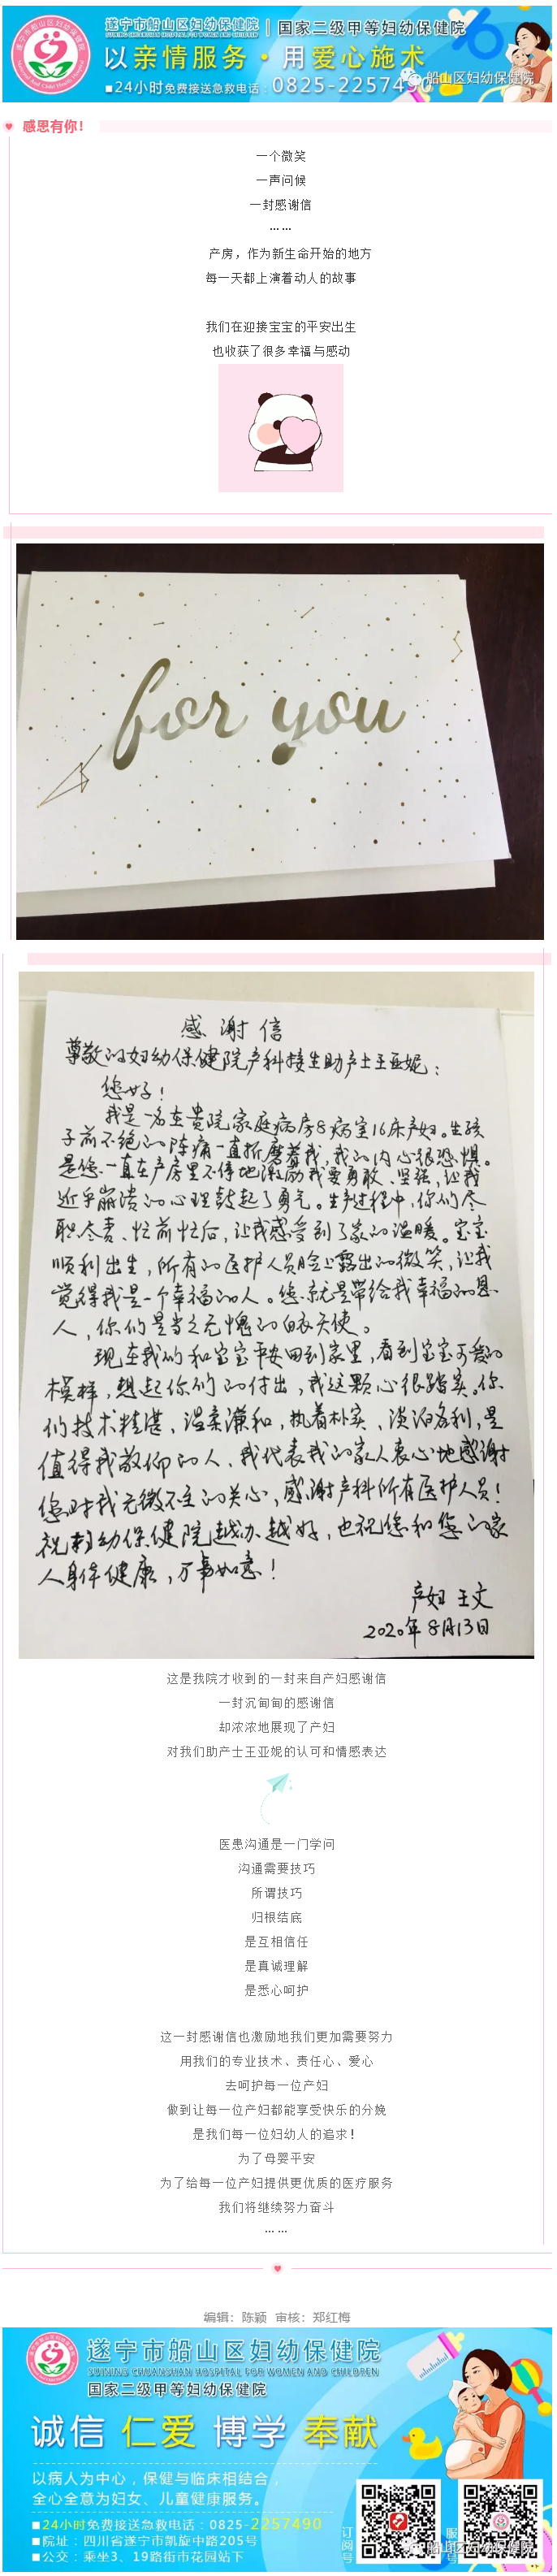 遂宁市船山区妇幼保健院
国家二级甲等妇幼保健院
SUINING CHUANSHAN HOSPITAL FOR WOMEN AND CHILDREN
以亲情服务·用爱心施术
■24小时免费接送急救电话：0825-2257490
船山区妇幼保健院
感恩有你！
一个微笑
一声问候
一封感谢信
……
产房，作为新生命开始的地方
每一天都上演着动人的故事
我们在迎接宝宝的平安出生
也收获了很多幸福与感动
for you
感谢信
尊敬的妇幼保健院产科接生助产士王亚妮：
您好！
我是一名在贵院家庭病房8病室16床产妇。生孩
子前不绝的阵痛一直折磨着我，我的内心很恐惧。
是您一直在产房里不停地激励我要勇敢、坚强，让我
近乎崩溃的心理鼓起了勇气。生产过程中，你们尽
职尽责、忙前忙后，让我感受到了家的温暖。宝宝
顺利出生，所有的医护人员脸上露出的微笑，让我
觉得我是一个幸福的人。您就是带给我幸福的恩
人，你们是当之无愧的白衣天使。
现在我的和宝宝平安回到家里，看到宝宝可爱的
模样，想起你们的付出，我这颗心很踏实。你
们技术精湛、温柔谦和，执着朴实、淡泊名利，是
值得我敬仰的人，我代表我的家人衷心地感谢
您对我无微不至的关心，感谢产科所有医护人员！
祝妇幼保健院越办越好，也祝您和您的家
人身体健康，万事如意！
产妇 王文
2020年8月13日
这是我院才收到的一封来自产妇感谢信
一封沉甸甸的感谢信
却浓浓地展现了产妇
对我们助产士王亚妮的认可和情感表达
医患沟通是一门学问
沟通需要技巧
所谓技巧
归根结底
是互相信任
是真诚理解
是悉心呵护
这一封感谢信也激励地我们更加需要努力
用我们的专业技术、责任心、爱心
去呵护每一位产妇
做到让每一位产妇都能享受快乐的分娩
是我们每一位妇幼人的追求！
为了母婴平安
为了给每一位产妇提供更优质的医疗服务
我们将继续努力奋斗
……
编辑：陈颖 审核：郑红梅
遂宁市船山区妇幼保健院
SUINING CHUANSHAN HOSPITAL FOR WOMEN AND CHILDREN
国家二级甲等妇幼保健院
诚信 仁爱 博学 奉献
以病人为中心，保健与临床相结合，
全心全意为妇女、儿童健康服务。
■24小时免费接送急救电话：0825-2257490
■院址：四川省遂宁市凯旋中路205号
■公交：乘坐3、19路街市花园站下
订阅号
服务号
船山区妇幼保健院